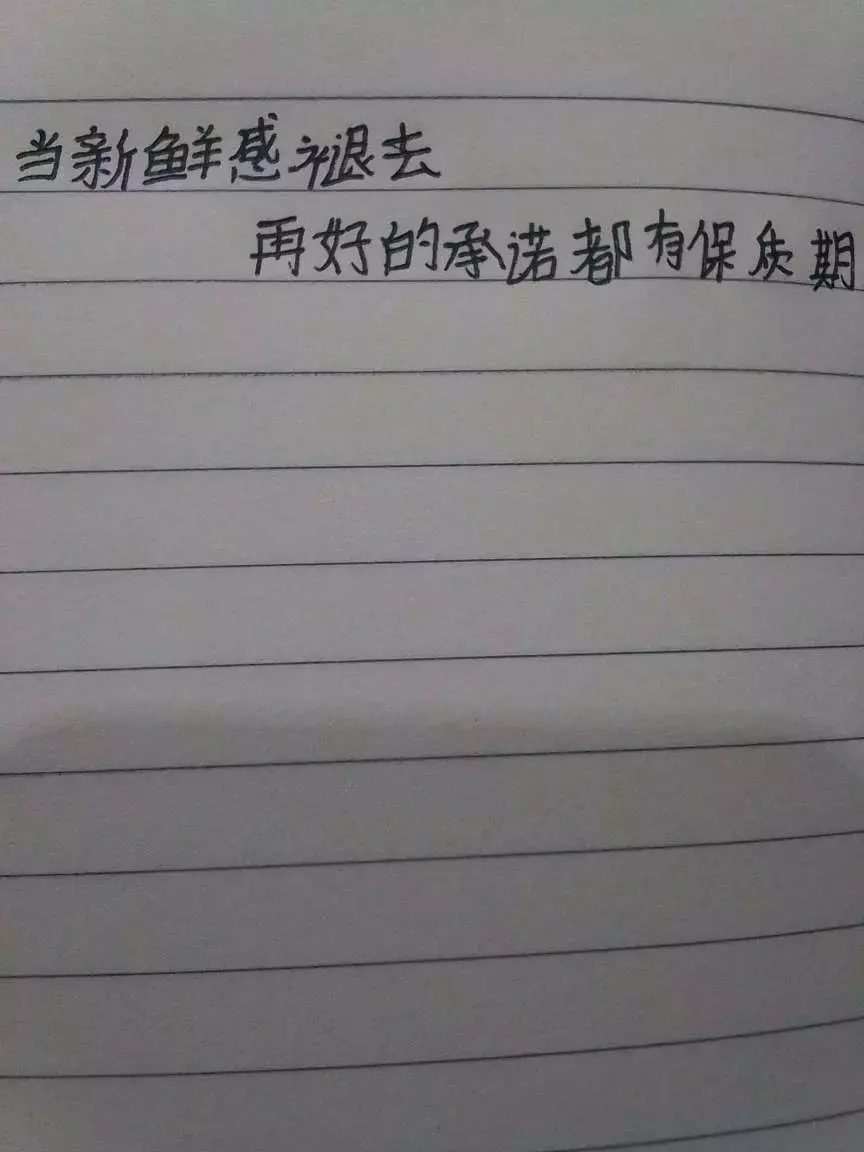 当新鲜感褪去
再好的承诺都有保质期